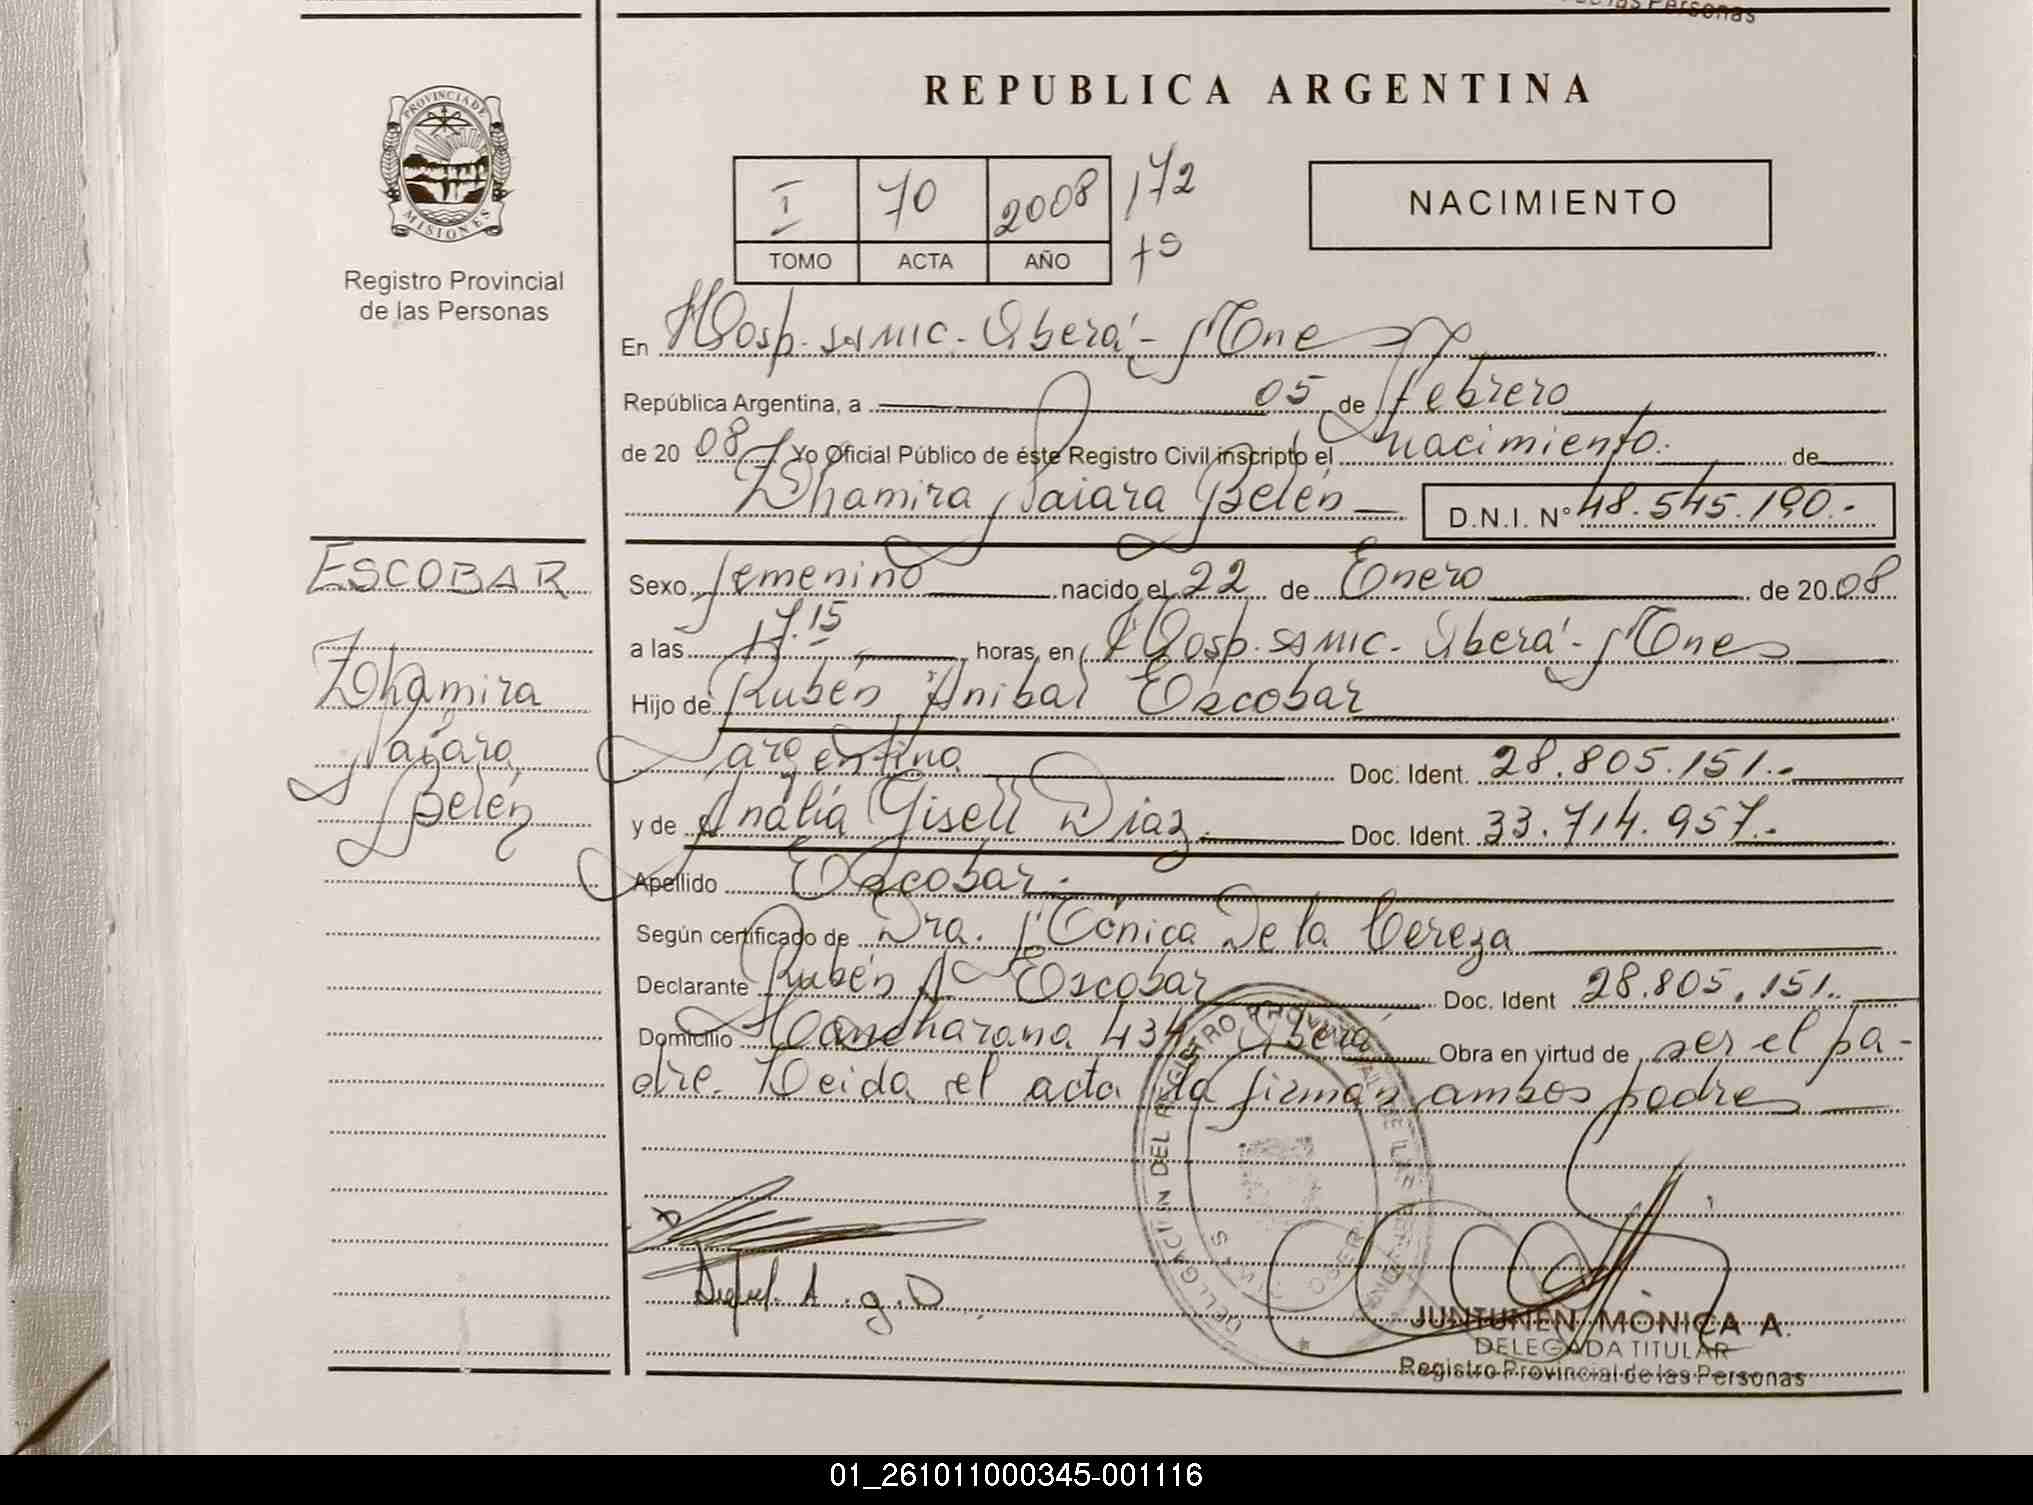 de las Personas
REPUBLICA ARGENTINA
PROVINCIA DE
MISIONES
Registro Provincial
de las Personas
I 70 2008 172
TOMO ACTA AÑO
NACIMIENTO
En Hosp. SAMIC - Oberá - Mnes
República Argentina, a 05 de Febrero
de 20 08 Yo Oficial Público de éste Registro Civil inscripto el nacimiento. de
Dhamira Naiara Belén D.N.I. N° 48.545.190.-
ESCOBAR
Dhamira
Naiara
Belén
Sexo femenino nacido el 22 de Enero de 20 08
a las 17.15 horas, en Hosp. SAMIC - Oberá - Mnes
Hijo de Rubén Anibal Escobar
argentina Doc. Ident. 28.805.151.-
y de Analía Gisell Diaz. Doc. Ident. 33.714.957.-
Apellido Escobar.
Según certificado de Dra. Mónica De la Cereza
Declarante Rubén A. Escobar Doc. Ident 28.805.151.
Domicilio 434 Oberá Obra en virtud de ser el pa-
dre. Leida el acta la firman ambos padres
A.g.D.
DELEGACION DEL REGISTRO PROVINCIAL DE LAS PERSONAS
JUNTUNEN MÒNICA A.
DELEGADA TITULAR
Registro Provincial de las Personas
01_261011000345-001116